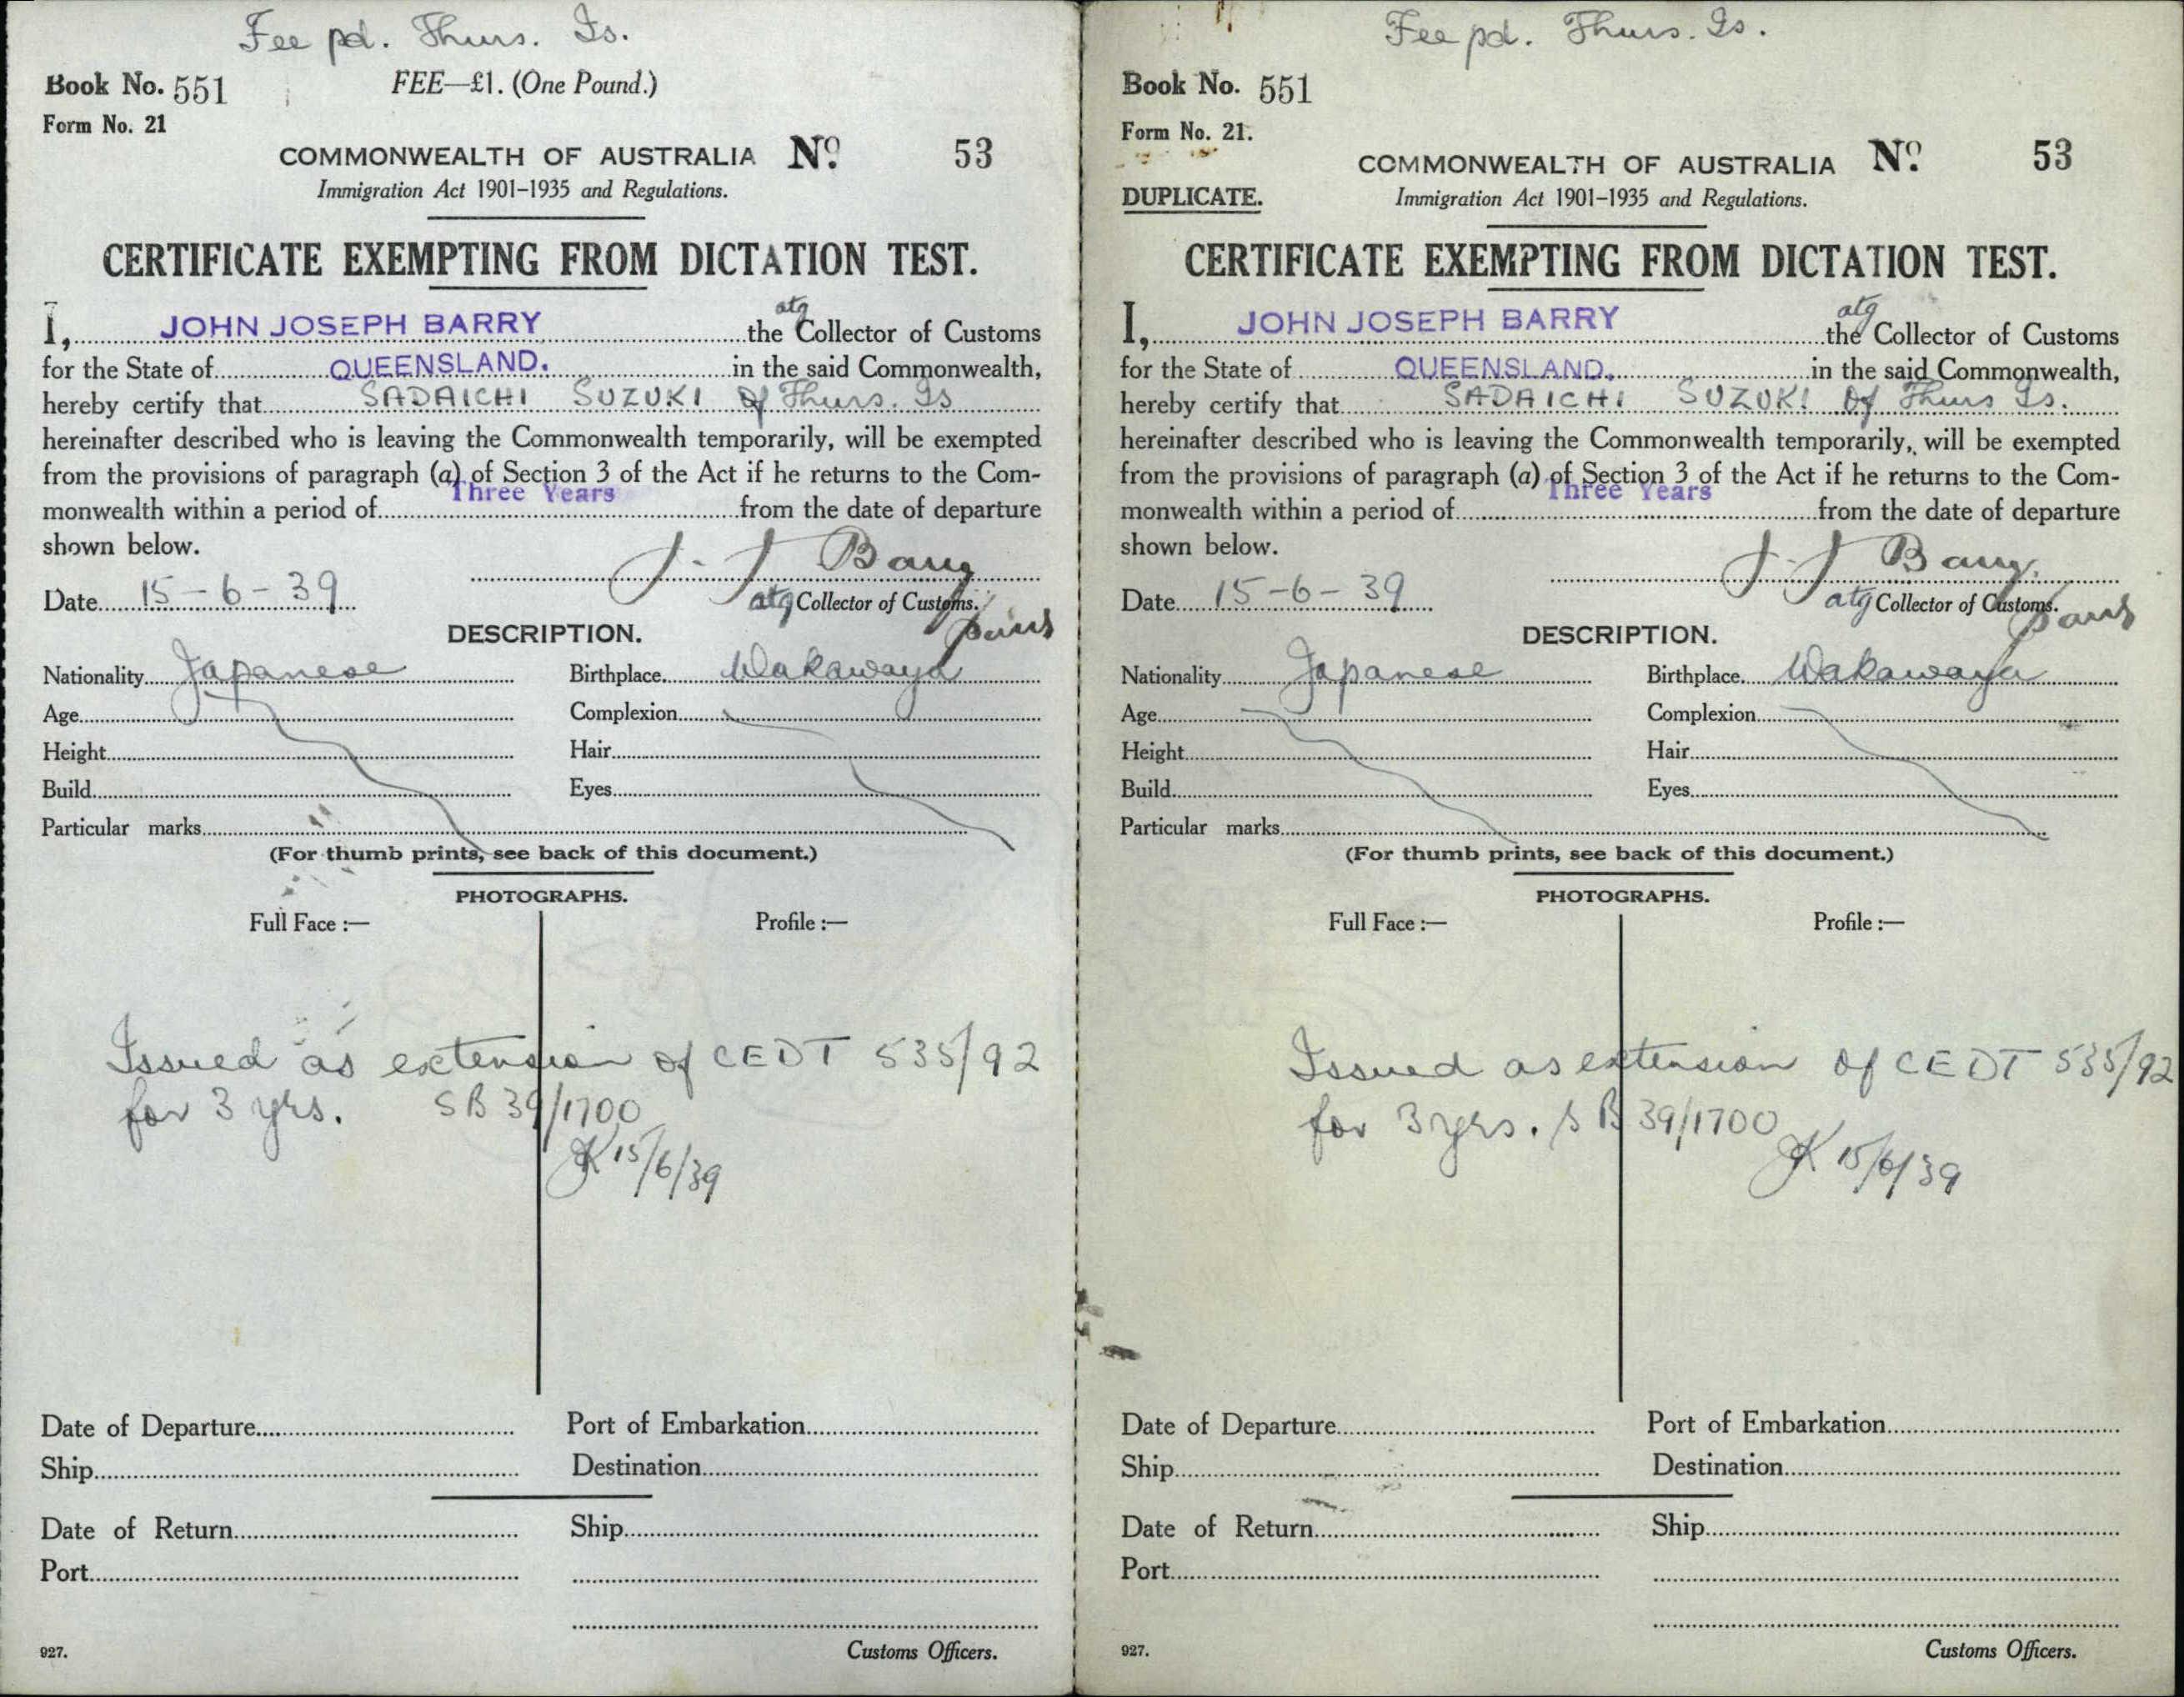 Fee pd. Thurs. Is.
Book No. 551
FEE—£1. (One Pound.)
Form No. 21
COMMONWEALTH OF AUSTRALIA No. 53
Immigration Act 1901–1935 and Regulations.
CERTIFICATE EXEMPTING FROM DICTATION TEST.
I, JOHN JOSEPH BARRY atg the Collector of Customs
for the State of QUEENSLAND. in the said Commonwealth,
hereby certify that SADAICHI SUZUKI of Thurs. Is
hereinafter described who is leaving the Commonwealth temporarily, will be exempted
from the provisions of paragraph (a) of Section 3 of the Act if he returns to the Com-
monwealth within a period of Three Years from the date of departure
shown below.
J. J Barry
Date 15-6-39
atg Collector of Customs.
DESCRIPTION.
Nationality Japanese Birthplace Wakawaya
Age Complexion
Height Hair
Build Eyes
Particular marks
(For thumb prints, see back of this document.)
PHOTOGRAPHS.
Full Face :— Profile :—
Issued as extension of CEDT 535/92
for 3 yrs. SB 39/1700
JK 15/6/39
Date of Departure Port of Embarkation
Ship Destination
Date of Return Ship
Port
927. Customs Officers.
Fee pd. Thurs. Is.
Book No. 551
Form No. 21.
COMMONWEALTH OF AUSTRALIA No. 53
DUPLICATE.
Immigration Act 1901–1935 and Regulations.
CERTIFICATE EXEMPTING FROM DICTATION TEST.
I, JOHN JOSEPH BARRY atg the Collector of Customs
for the State of QUEENSLAND. in the said Commonwealth,
hereby certify that SADAICHI SUZUKI of Thurs Is.
hereinafter described who is leaving the Commonwealth temporarily, will be exempted
from the provisions of paragraph (a) of Section 3 of the Act if he returns to the Com-
monwealth within a period of Three Years from the date of departure
shown below.
J. J Barry.
Date 15-6-39
atg Collector of Customs.
DESCRIPTION.
Nationality Japanese Birthplace Wakawaya
Age Complexion
Height Hair
Build Eyes
Particular marks
(For thumb prints, see back of this document.)
PHOTOGRAPHS.
Full Face :— Profile :—
Issued as extension of CEDT 535/92
for 3 yrs. SB 39/1700
JK 15/6/39
Date of Departure Port of Embarkation
Ship Destination
Date of Return Ship
Port
927. Customs Officers.